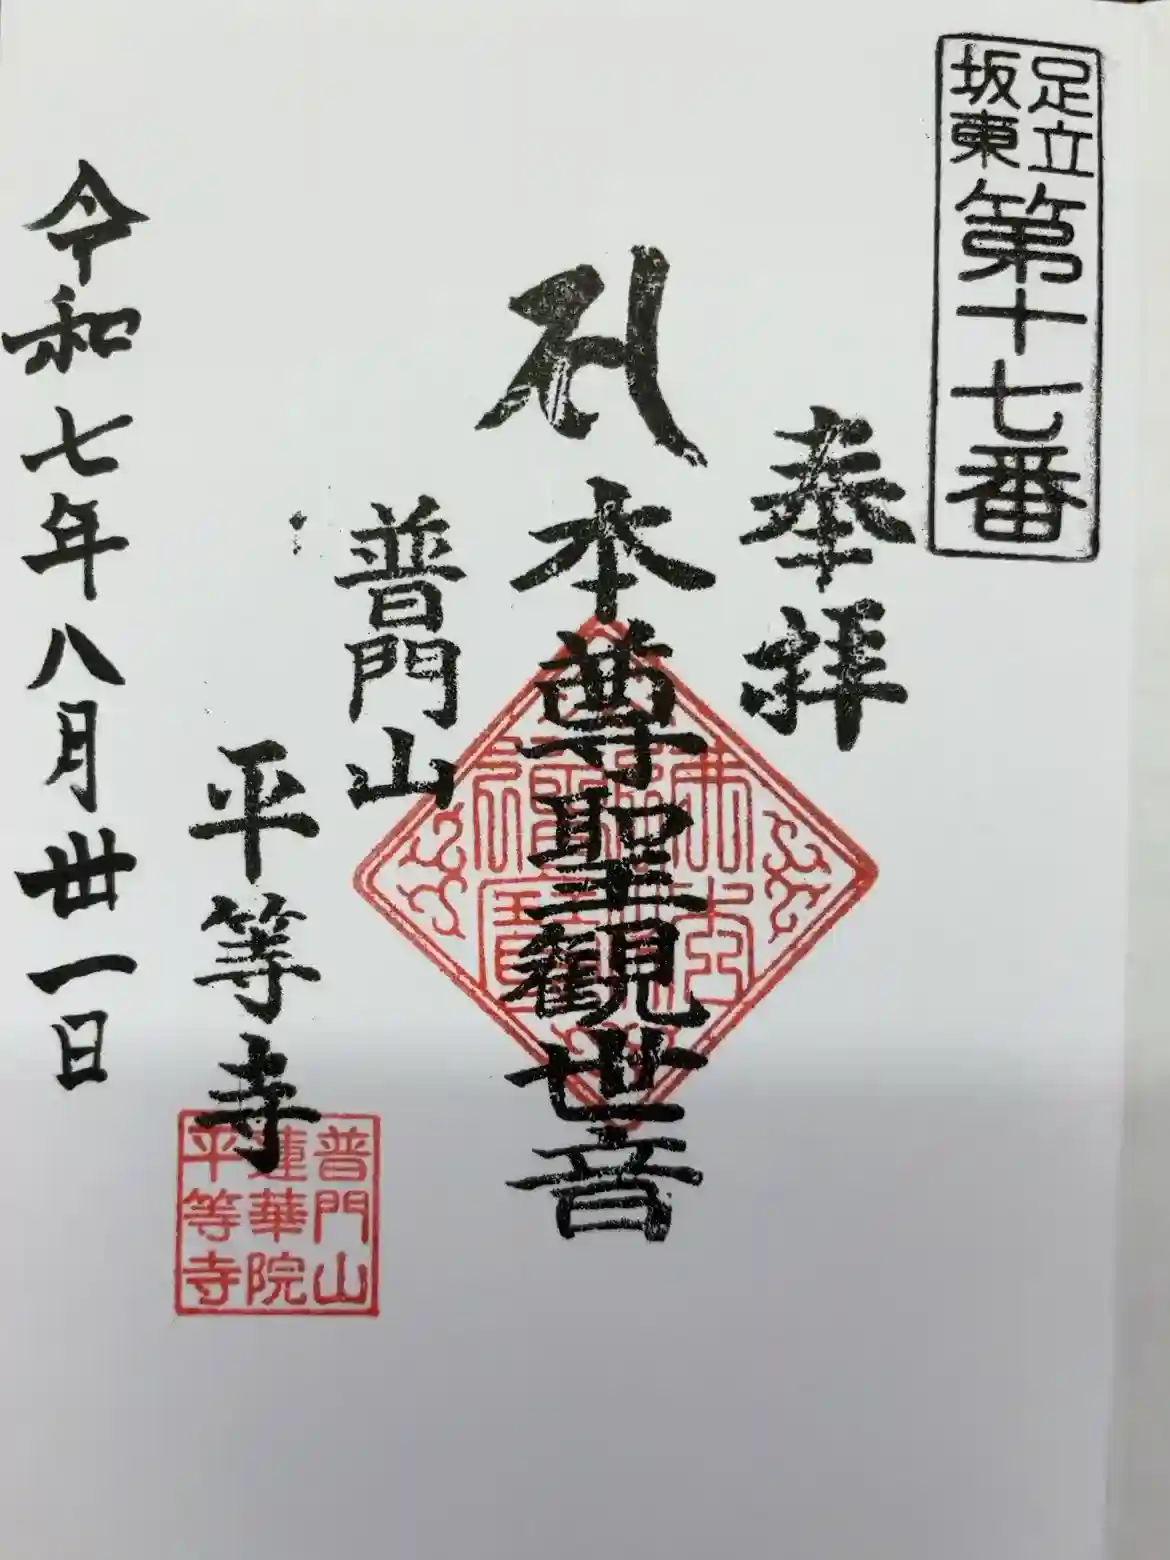 足立
坂東
第十七番
奉拝
本尊聖観世音
普門山
平等寺
令和七年八月丗一日
普門山
蓮華院
平等寺